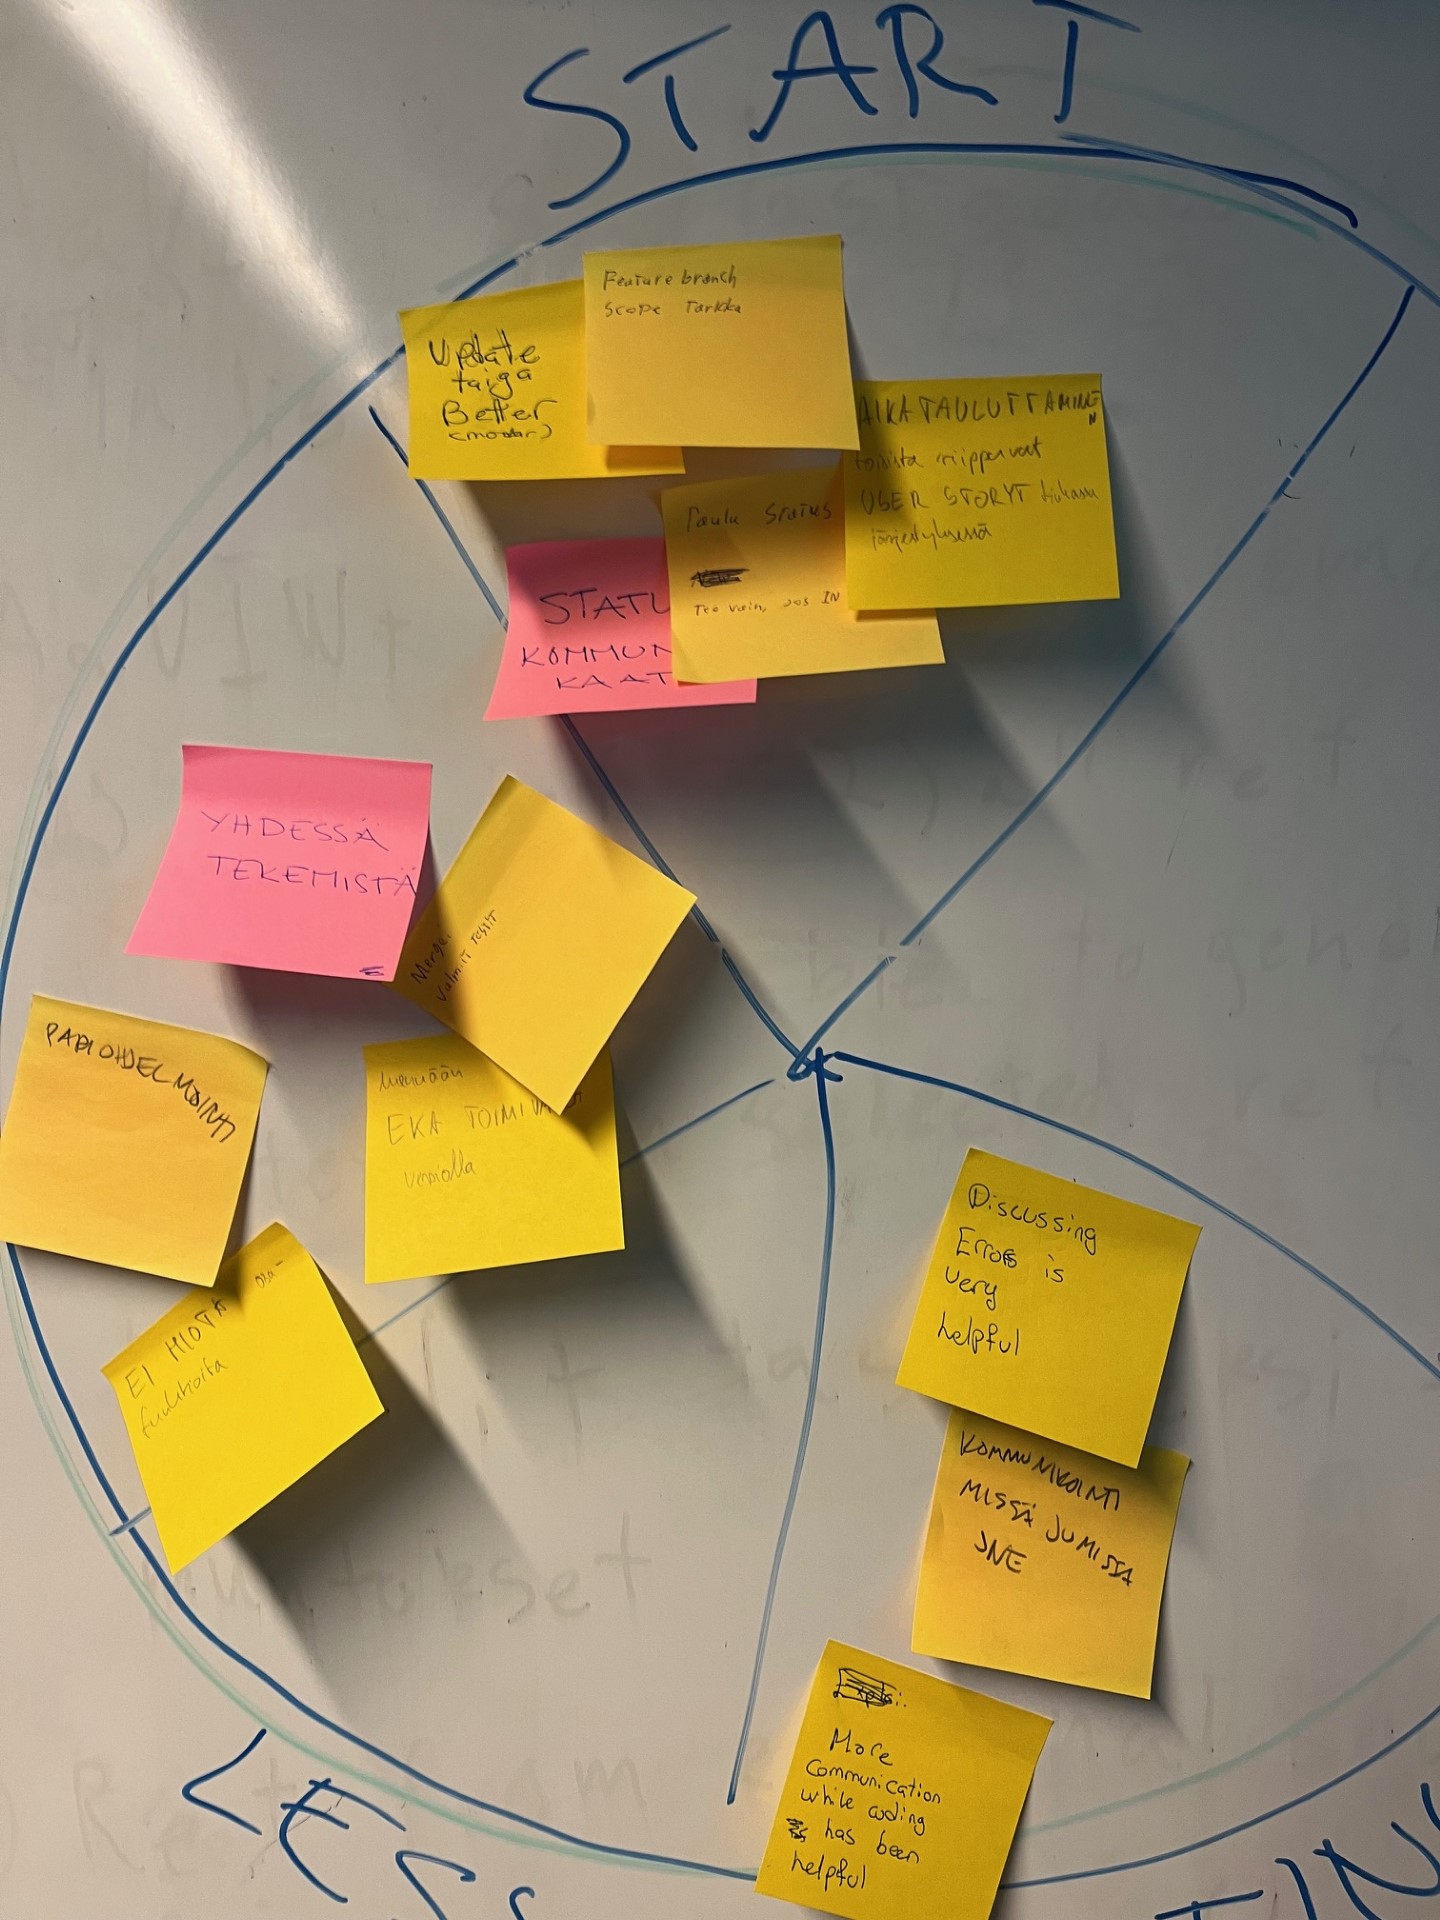 START
Feature branch
scope Tarkka
Update
taiga
Better
AIKATAULUTTAMINEN
toisista riippuvat
USER STORYT
järjestyksessä
Taulu Status
Tee vain, jos IN
STATU
KOMMUN
KAAT
YHDESSÄ
TEKEMISTÄ
Mergei
valmiit testit
PARIOHJELMOINTI
mennään
EKA
versiolla
EI HIOTA osa-
Discussing
Errors is
very
helpful
KOMMUNIKOINTI
MISSÄ JUMISSA
JNE
More
Communication
while coding
has been
helpful
LESS
TIN